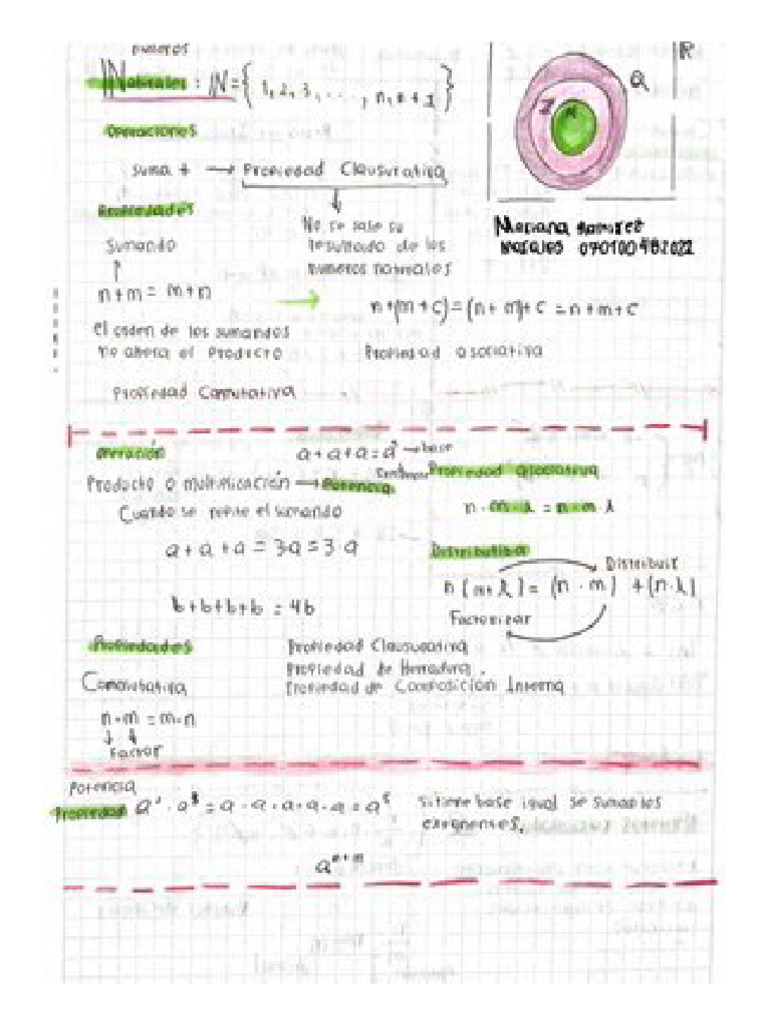 numeros
INaturales : IN = { 1, 2, 3, ..., n, n + 1 }
R
Q
Z
N
Operaciones
Suma + → Propiedad Clausurativa
Propiedades
No se sale su
resultado de los
numeros naturales
Mariana Ramirez
Morales 0701004182022
Sumando
n + m = m + n
n + (m + c) = (n + m) + c = n + m + c
el orden de los sumandos
no altera el Producto
Propiedad asociativa
Propiedad Conmutativa
Operación
a + a + a = a → base
Producto o multiplicación → Potencia
Propiedad asociativa
Cuando se repite el sumando
n · m · l = n · m · l
a + a + a = 3a = 3 · a
Distributiba
Distribuir
n [m + l] = (n · m) + (n · l)
b + b + b + b = 4b
Factorizar
Propiedades
Propiedad Clausurativa
Propiedad de
Propiedad de Composición Interna
n · m = m · n
Factor
Potencia
Propiedad a² · a³ = a · a · a · a · a = a⁵
Si tiene base igual se suman los
exponentes.
aⁿ⁺ᵐ